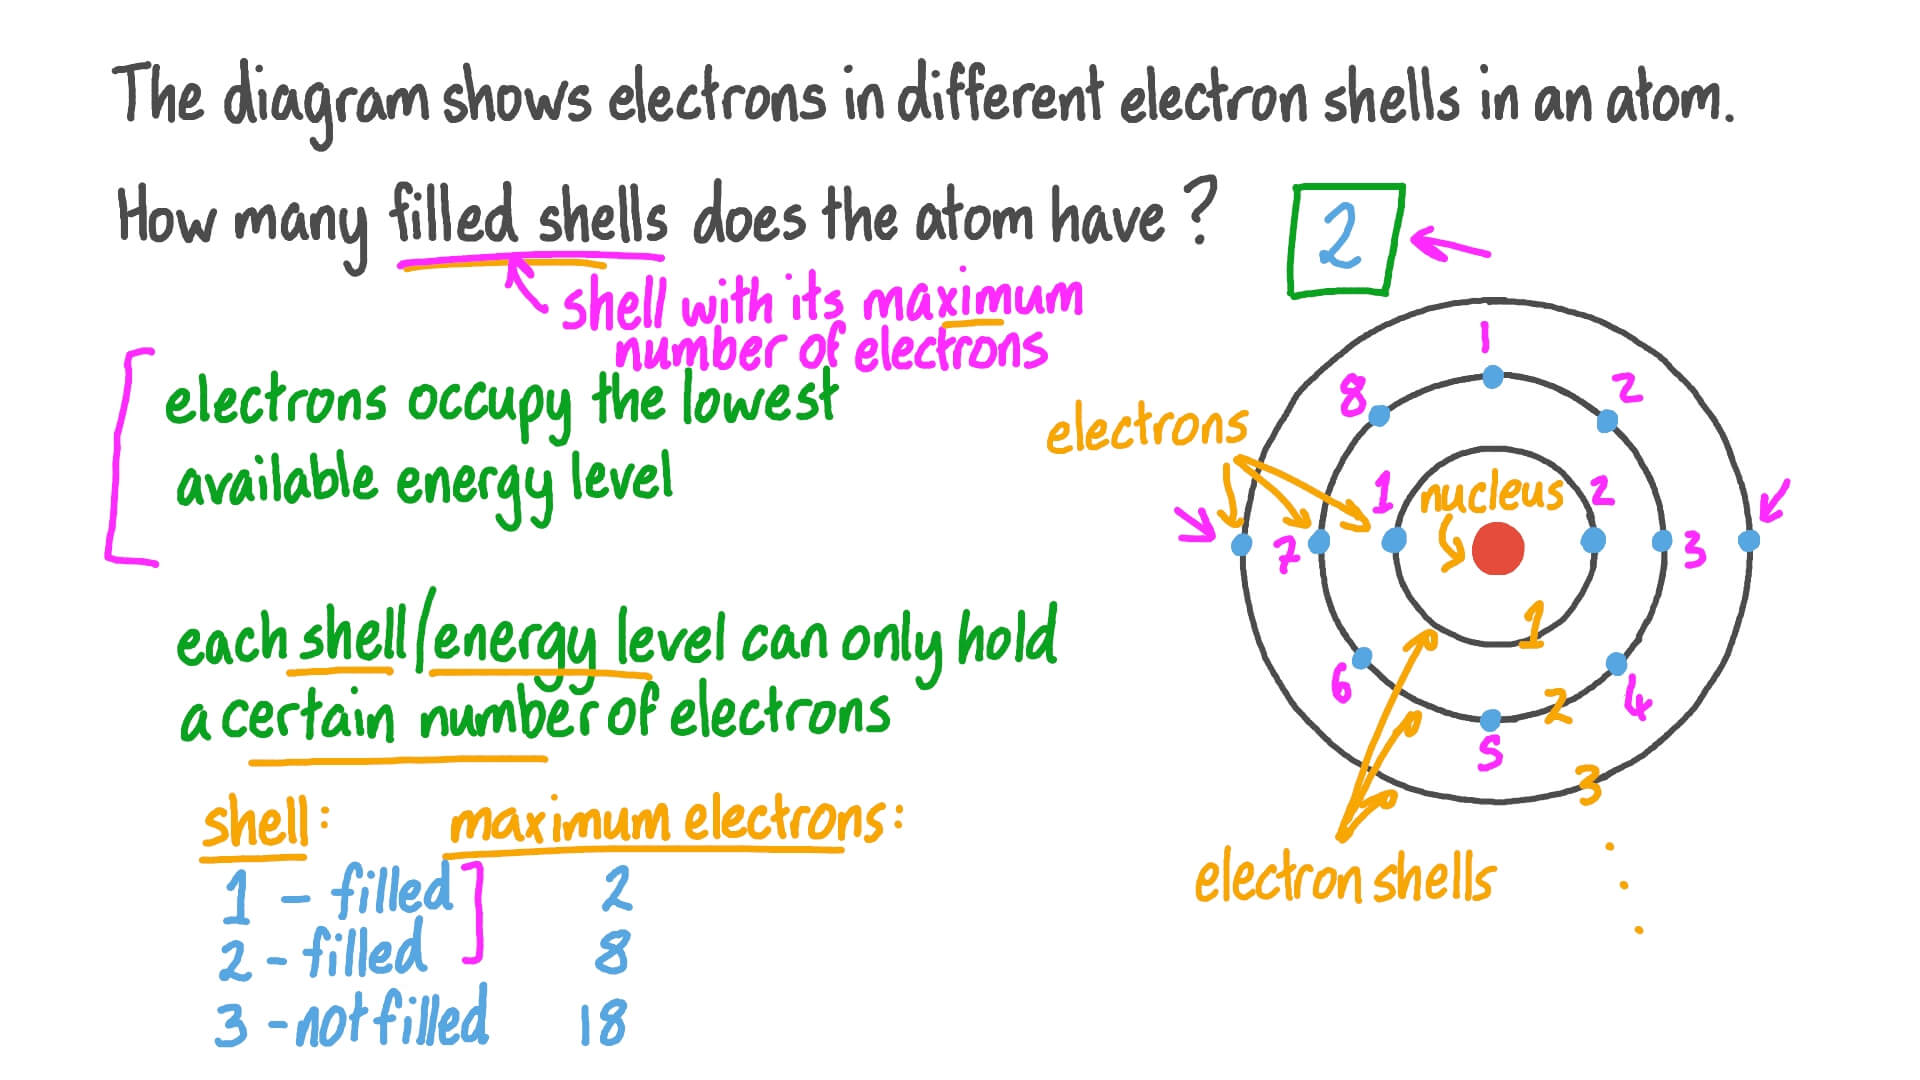 The diagram shows electrons in different electron shells in an atom.
How many filled shells does the atom have?
2
shell with its maximum
number of electrons
electrons occupy the lowest
available energy level
each shell/energy level can only hold
a certain number of electrons
shell: maximum electrons:
1 - filled 2
2 - filled 8
3 - not filled 18
electrons
nucleus
electron shells
1
2
1
2
3
4
5
6
7
8
1
2
3